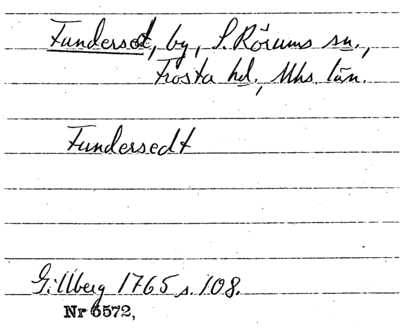 Fundersed, by, S. Rörums sn.,
Frosta hd., Mhs. län.
Fundersedt
Gillberg 1765 s. 108.
Nr 6572,